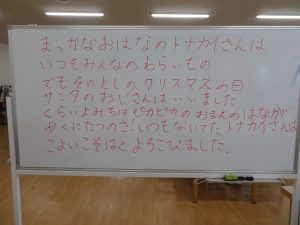 まっかなおはなのトナカイさんは
いつもみんなのわらいもの
でもそのとしのクリスマスの日
サンタのおじさんはいいました
くらいよみちはピカピカのおまえのはなが
やくにたつのさ！いつもないてたトナカイさんは
こよいこそはとよろこびました。